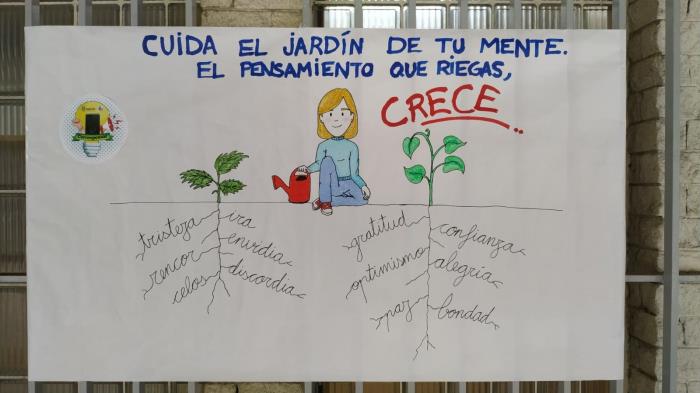 CUIDA EL JARDÍN DE TU MENTE.
EL PENSAMIENTO QUE RIEGAS,
CRECE...
tristeza
ira
rencor
envidia
celos
discordia
gratitud
confianza
optimismo
alegria
paz
bondad